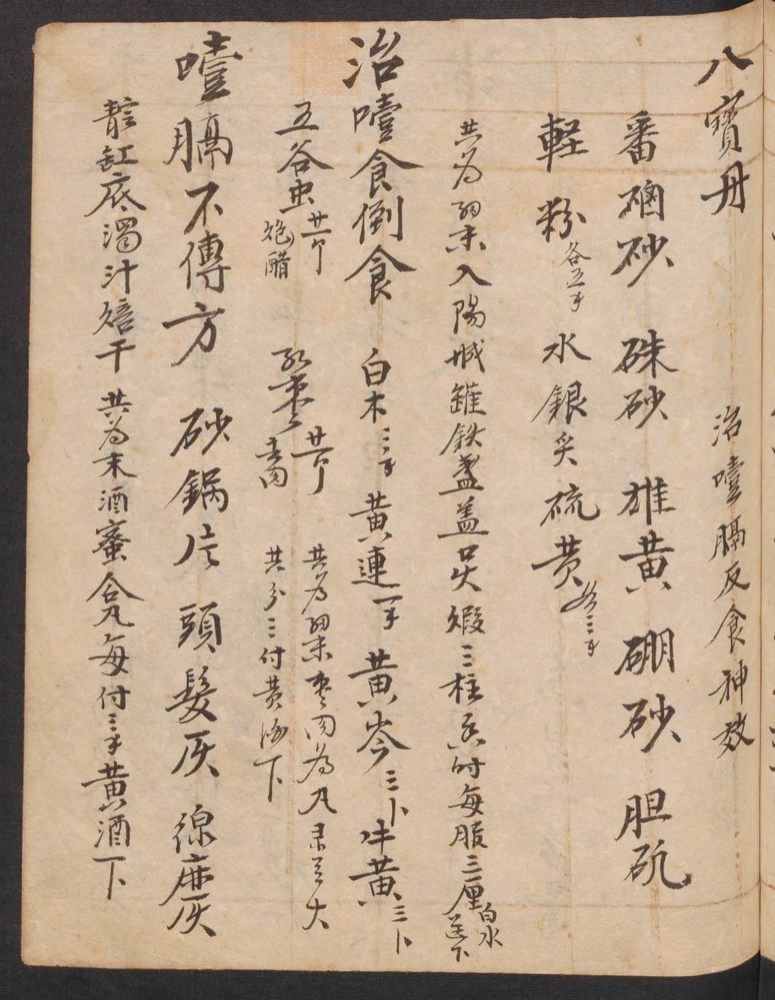 八寶丹 治噎膈反食神效
番硇砂 硃砂 雄黄 硼砂 胆矾
軽粉各五手 水銀 硫黄
共為細末入陽城鑵鉄盞盖口火煅三柱香時每服三厘白水送下
治噎食倒食 白木三手 黄連一手 黄芩三卜 牛黄三卜
五谷虫廿个炮醋 紅枣廿个去肉 共為細末枣肉為丸菉豆大
共分三付黄酒下
噎膈不傳方 砂鍋片 頭髮灰 線麻灰
靛缸底濁汁焙干 共為末酒蜜合丸每付三手黄酒下